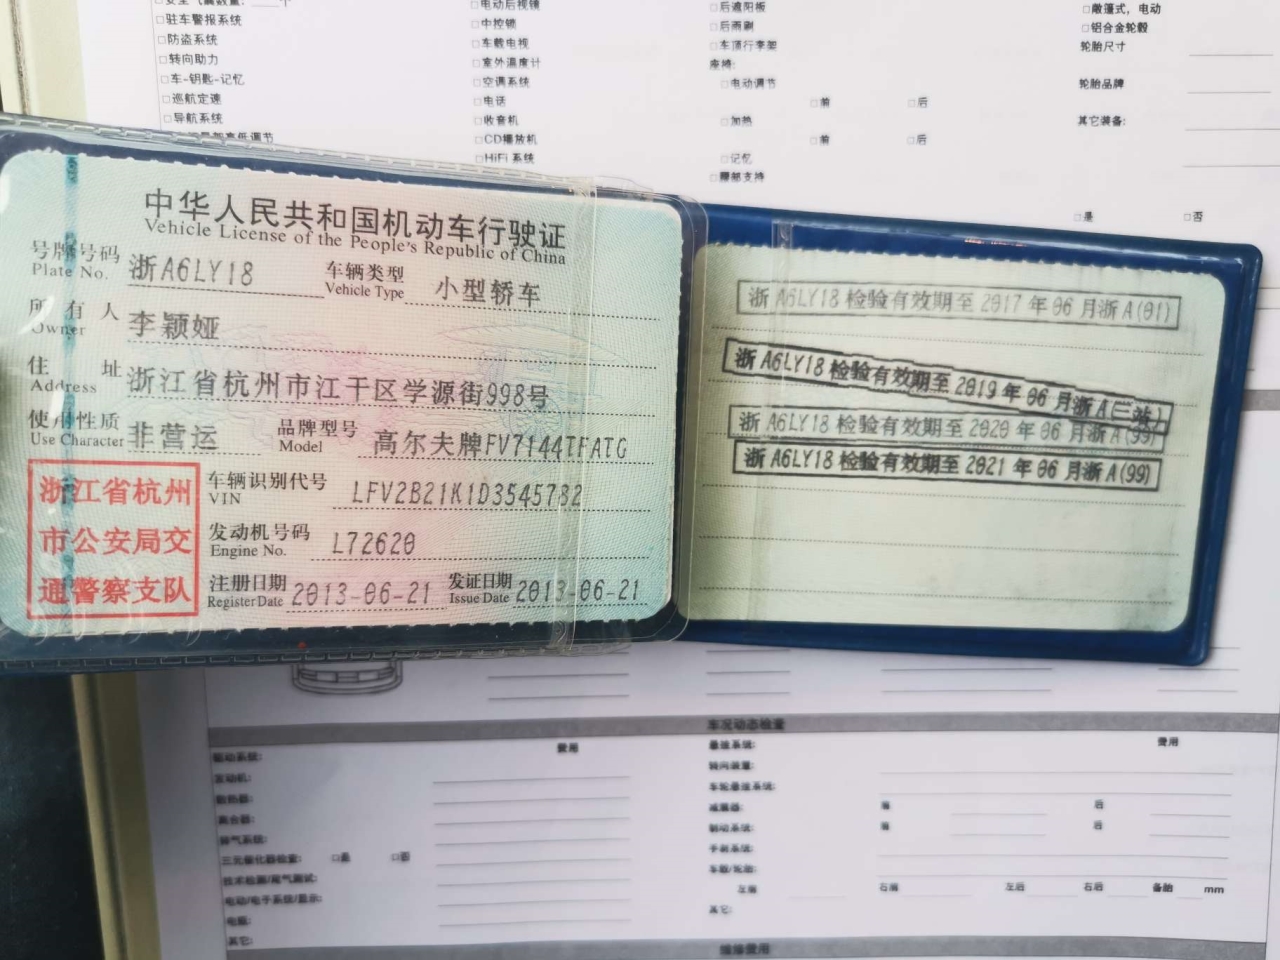 □驻车警报系统
□防盗系统
□转向助力
□车-钥匙-记忆
□巡航定速
□导航系统
□电动后视镜
□中控锁
□车载电视
□室外温度计
□空调系统
□电话
□收音机
□CD播放机
□HiFi 系统
□后遮阳板
□后雨刷
□车顶行李架
座椅:
□电动调节
□前 □后
□加热
□前 □后
□记忆
□腰部支持
□敞篷式，电动
□铝合金轮毂
轮胎尺寸
轮胎品牌
其它装备:
□是 □否
中华人民共和国机动车行驶证
Vehicle License of the People's Republic of China
号牌号码 浙A6LY18 车辆类型 小型轿车
Plate No. Vehicle Type
所有人 李颖娅
Owner
住址 浙江省杭州市江干区学源街998号
Address
使用性质 非营运 品牌型号 高尔夫牌FV7144TFATG
Use Character Model
浙江省杭州
市公安局交
通警察支队
车辆识别代号 LFV2B21K1D3545782
VIN
发动机号码 L72620
Engine No.
注册日期 2013-06-21 发证日期 2013-06-21
Register Date Issue Date
浙 A6LY18 检验有效期至 2017 年 06 月浙 A(01)
浙 A6LY18 检验有效期至 2019 年 06 月浙 A(三站)
浙 A6LY18 检验有效期至 2020 年 06 月浙 A(99)
浙 A6LY18 检验有效期至 2021 年 06 月浙 A(99)
车况动态检查
费用
驱动系统:
发动机:
散热器:
离合器:
排气系统:
三元催化器检查: □是 □否
技术检测/尾气测试:
电动/电子系统/显示:
电瓶:
其它:
费用
悬挂系统:
转向装置:
车轮悬挂系统:
减震器: 前 后
制动系统: 前 后
手刹系统:
车毂/轮胎:
左前 右前 左后 右后 备胎 mm
其它:
维修费用